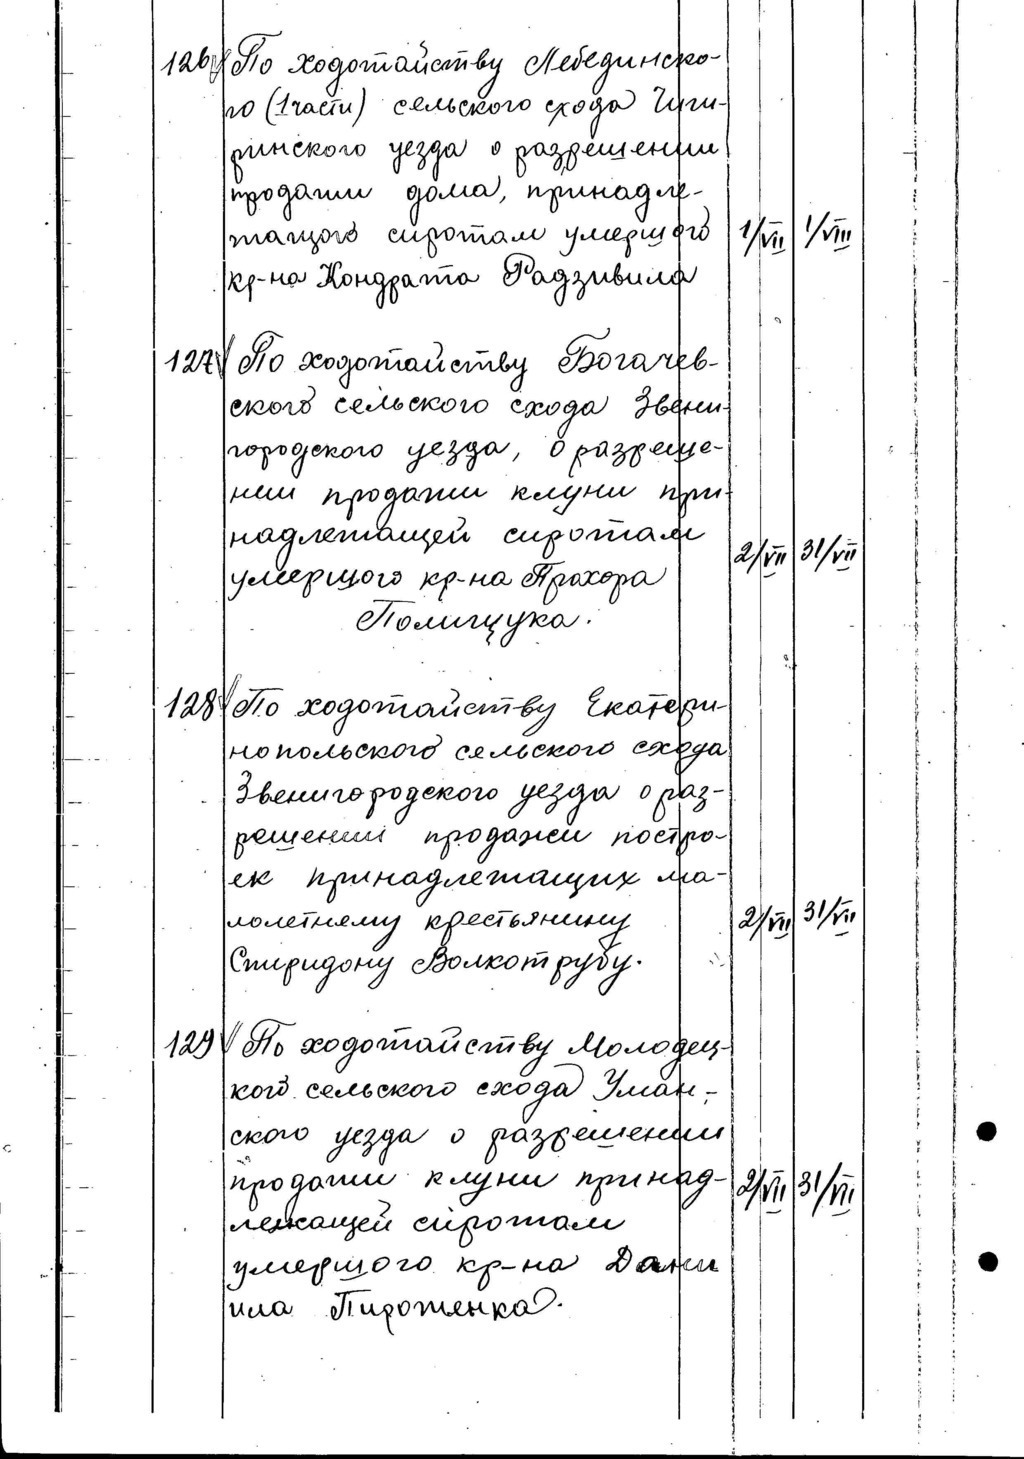 126 По ходотайству Лебединско-
го (1 части) сельского схода Чиги-
ринского уезда о разрешении
продажи дома, принадле-
жащого сиротам умершого 1/VII 1/VIII
кр-на Кондрата Радзивила
127 По ходотайству Богачев-
ского сельского схода Звени-
городского уезда, о разреше-
нии продажи клуни при-
надлежащей сиротам 2/VII 31/VII
умершого кр-на Прохора
Полищука.
128 По ходотайству Екатери-
нопольского сельского схода
Звенигородского уезда о раз-
решении продажи постро-
ек принадлежащих ма-
лолетнему крестьянину 2/VII 31/VII
Спиридону Волкотрубу.
129 По ходотайству Молодец-
кого сельского схода Уман-
ского уезда о разрешении
продажи клуни принад- 2/VII 31/VII
лежащей сиротам
умершого кр-на Дани
ила Пироженка.